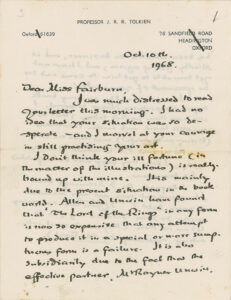 1
PROFESSOR J. R. R. TOLKIEN
Oxford 61639
76 SANDFIELD ROAD
HEADINGTON
OXFORD
Oct. 10th.
1968.
Dear Miss Fairburn,
I was much distressed to read
your letter this morning. I had no
idea that your situation was so de-
sperate – and I marvel at your courage
in still practising your art.
I don't think your ill fortune (in
the matter of the illustrations) is really
bound up with mine. It is mainly
due to the present situation in the book
world. Allen and Unwin have found
that 'The Lord of the Rings' in any form
is now so expensive that any attempt
to produce it in a special or more sump-
tuous form is a failure. It is also
subsidiarily due to the fact that the
effective partner, Mr Rayner Unwin,